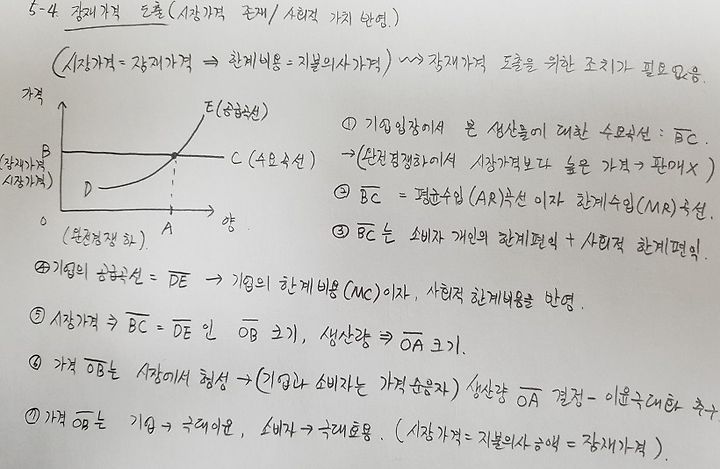 5-4. 잠재가격 도출 (시장가격 존재/사회적 가치 반영.)
(시장가격=잠재가격 ⇒ 한계비용=지불의사가격) ⇝ 잠재가격 도출을 위한 조치가 필요없음.
가격
E(공급곡선)
B
(잠재가격
시장가격)
C (수요곡선)
D
O
A
양
(완전경쟁하).
① 기업입장에서 본 생산물에 대한 수요곡선 : BC.
→(완전경쟁하에서 시장가격보다 높은 가격 → 판매X)
② BC = 평균수입(AR)곡선 이자 한계수입(MR)곡선.
③ BC는 소비자 개인의 한계편익 + 사회적 한계편익.
④ 기업의 공급곡선 = DE → 기업의 한계비용(MC)이자, 사회적 한계비용을 반영.
⑤ 시장가격 ⇒ BC = DE 인 OB 크기, 생산량 ⇒ OA 크기.
⑥ 가격 OB는 시장에서 형성 → (기업과 소비자는 가격순응자) 생산량 OA 결정 - 이윤극대화 추구.
⑦ 가격 OB는 기업 → 극대이윤, 소비자 → 극대효용. (시장가격 = 지불의사금액 = 잠재가격).